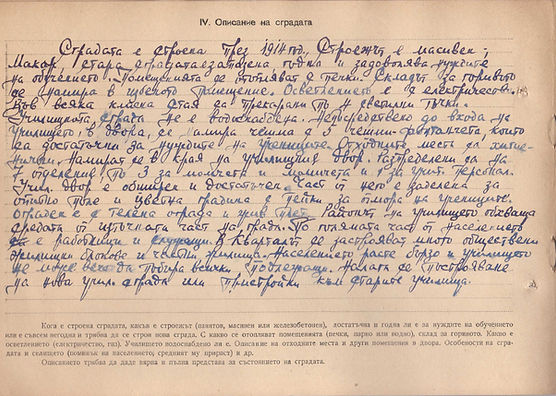 IV. Описание на сградата
Сградата е строена през 1914 год., Строежът е масивен;
Макар, стара сградата е запазена, годна и задоволява нуждите
на обучението. Помещенията се отопляват с печки. Складът за горивото
се намира в избеното помещение. Осветлението е електрическо.
Във всяка класна стая са прекарани по 4 светлини точки.
Училищната сграда не е водоснабдена. Непосредствено до входа на
училището, в двора, се намира чешма с 5 чешми-фонтанчета, които
са достатъчни за нуждите на учениците. Отходните места са хигие-
нични. Намират се в края на училищния двор. Разпределени са на
7 отделения по 3 за момчета и момичета и 1 за учит. персонал.
Учил. двор е обширен и достатъчен. Част от него е заделена за
опитно поле и цветна градина с пейки за отмора на учениците.
Ограден е с телена ограда и жив плет. Районът на училището обхваща
средата от източната част на града. По голямата част от населението
са е работници и служащи. В Кварталът се застрояват много обществени
жилищни блокове и частни жилища. Населението расте бързо и училището
не може вече да побира всички подлежащи. Налага се построяване
на нова учил. сграда или пристройки към старите училища.
Кога е строена сградата, какъв е строежът (паянтов, масивен или железобетонен), достатъчна и годна ли е за нуждите на обучението
или е съвсем негодна и трябва да се строи нова сграда. С какво се отопляват помещенията (печки, парно или водно), склад за горивото. Какво е
осветлението (електричество, газ). Училището водоснабдено ли е. Описание на отходните места и други помещения в двора. Особености на сгра-
дата и селището (поминък на населението, средният му прираст) и др.
Описанието трябва да даде вярна и пълна представа за състоянието на сградата.